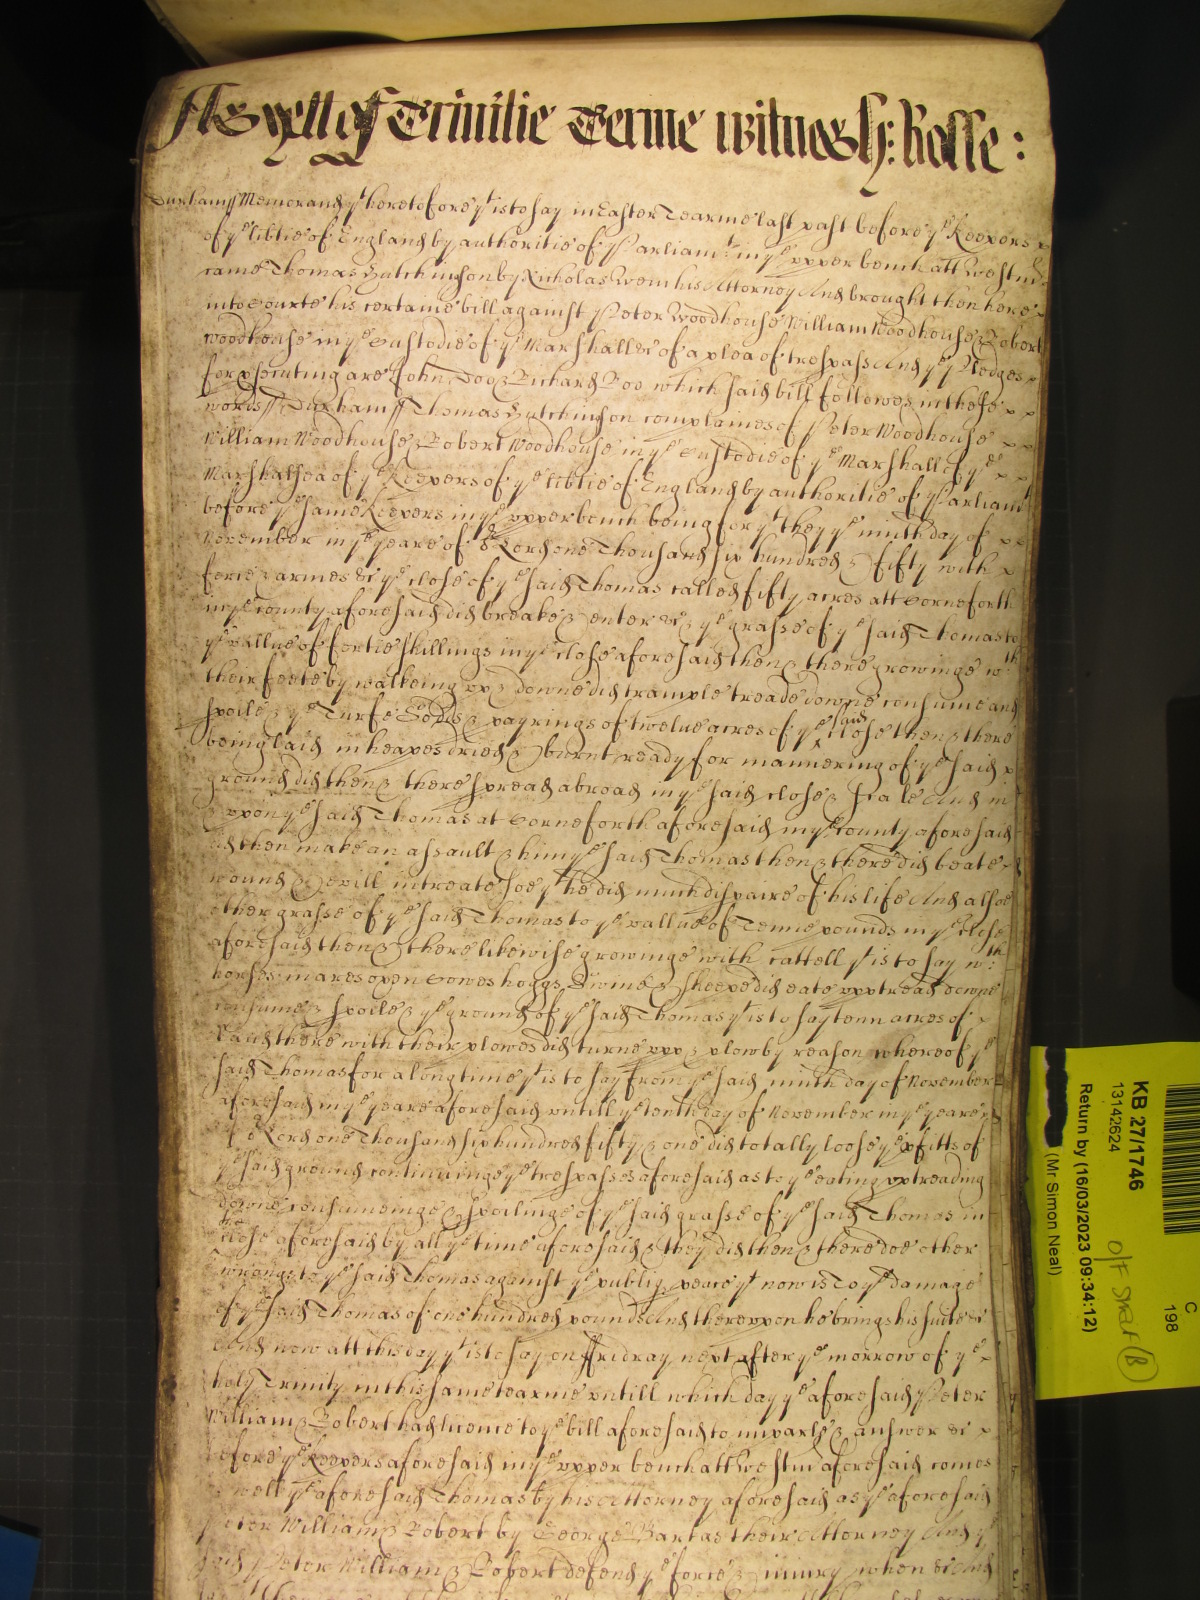 As yett of Trinitie Terme witnes H: Rolle:
Durham ss Memorand yt heretofore yt is to say in Easter Tearme last past before ye Keepers
of ye libtie of England by authoritie of Parliamt in ye upper bench att Westm
came Thomas Hutchinson by Nicholas Wem his Attorney And brought then here
into Courte his certaine bill against Peter Woodhouse William Woodhouse & Robert
Woodhouse in ye Custodie of ye Marshall &c of a plea of trespass And ye Pledges
for psecuting are John Doo & Richard Roo which said bill followes in these
words ss Durham ss Thomas Hutchinson complaines of Peter Woodhouse
William Woodhouse & Robert Woodhouse in ye Custodie of ye Marshall of ye
Marshalsea of ye Keepers of ye libtie of England by authoritie of Parliamt
before ye same Keepers in ye upper bench being for yt they ye ninth day of
November in ye yeare of or Lord one Thousand six hundred & fifty with
force & armes &c ye close of ye said Thomas called fifty acres att Corneforth
in ye County aforesaid did breake & enter &c & ye grasse of ye said Thomas to
ye vallue of fortie shillings in ye close aforesaid then & there growinge wth
their feete by walkeing upp & downe did trample treade downe consume and
spoile & ye Turfe Sodds & payrings of twelve acres of ye said close then & there
being laid in heapes dried & burnt ready for mannering of ye said
ground did then & there spread abroad in ye said close & And in
& upon ye said Thomas at Corneforth aforesaid in ye County aforesaid
did then make an assault & him ye said Thomas then & there did beate
wound & evill intreate soe yt he did much dispaire of his life And alsoe
other grasse of ye said Thomas to ye vallue of Tenne pounds in ye close
aforesaid then & there likewise growinge with cattell yt is to say wth
horses mares oxen Cowes hoggs Swine & sheepe did eate upp tread downe
consume & spoile & ye ground of ye said Thomas yt is to say tenn acres of
Land there with their plowes did turne upp & plow by reason whereof ye
said Thomas for a long time yt is to say from ye said ninth day of November
aforesaid in ye yeare aforesaid untill ye tenth day of November in ye yeare
of or Lord one Thousand six hundred fifty & one did totally loose ye pfitts of
ye said ground continuinge ye trespasses aforesaid as to ye eating up treading
downe consumeinge & spoilinge of ye said grasse of ye said Thomas in
ye close aforesaid by all ye time aforesaid & they did then & there doe other
wrongs to ye said Thomas against ye publiq peace yt now is To ye damage
of ye said Thomas of one hundred pounds And thereupon he brings his suite &c
And now att this day yt is to say on Fridray next after ye morrow of ye
holy Trinity in this same tearme untill which day ye aforesaid Peter
William & Robert had licence to ye bill aforesaid to imparle & answer &c
before ye Keepers aforesaid in ye upper bench att Westm aforesaid comes
as well ye aforesaid Thomas by his Attorney aforesaid as ye aforesaid
Peter William & Robert by George Bartas their Attorney And ye
said Peter William & Robert defend ye force & iniury when &c And
KB 27/1746
13142624
Return by (16/03/2023 09:34:12)
(Mr Simon Neal)
C
198